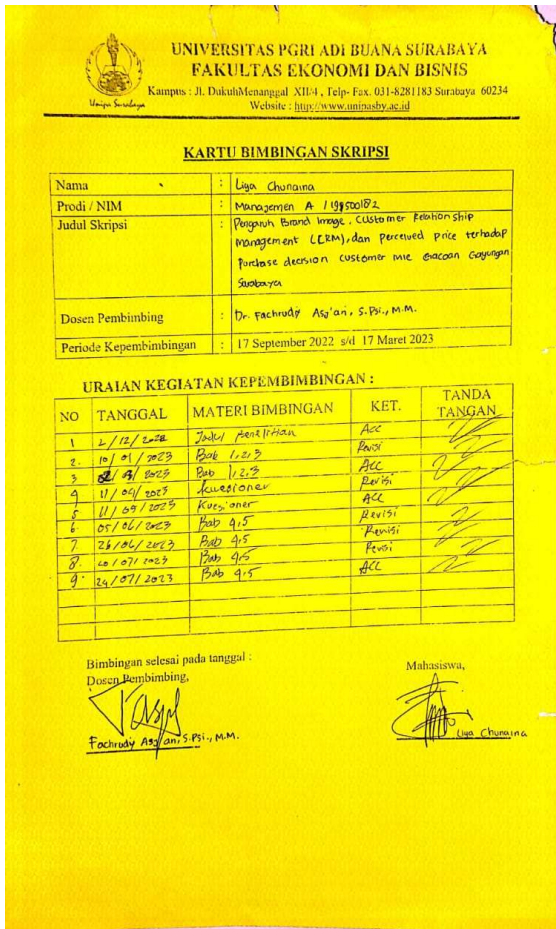 UNIVERSITAS PGRI ADI BUANA SURABAYA
FAKULTAS EKONOMI DAN BISNIS
Kampus : Jl. DukuhMenanggal XII/4 , Telp- Fax. 031-8281183 Surabaya 60234
Website : http://www.unipasby.ac.id
Unipa Surabaya
KARTU BIMBINGAN SKRIPSI
Nama : Liya Chunaina
Prodi / NIM : Manajemen A /
Judul Skripsi : Pengaruh Brand Image, Customer Relationship
management (CRM), dan perceived price terhadap
Purchase decision customer mie Gacoan Gayungan
Surabaya
Dosen Pembimbing : Dr. Fachrudy Asj'ari, S.Psi., M.M.
Periode Kepembimbingan : 17 September 2022 s/d 17 Maret 2023
URAIAN KEGIATAN KEPEMBIMBINGAN :
NO TANGGAL MATERI BIMBINGAN KET. TANDA TANGAN
1 2/12/2022 Judul penelitian Acc
2. 10/01/2023 Bab 1,2,3 Revisi
3 2023 Bab 1,2,3 Acc
4 11/04/2023 Kuesioner Revisi
5 11/05/2023 Kuesioner Acc
6. 05/06/2023 Bab 4,5 Revisi
7. 26/06/2023 Bab 4,5 Revisi
8. 20/07/2023 Bab 4,5 Revisi
9. 24/07/2023 Bab 4,5 Acc
Bimbingan selesai pada tanggal :
Dosen Pembimbing,
Mahasiswa,
Fachrudy Asj'ari, S.Psi., M.M.
Liya Chunaina